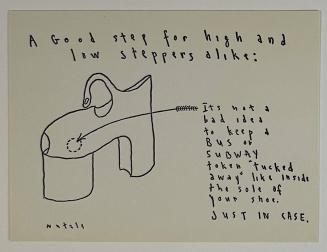 A Good step for high and
low steppers alike:
Its not a
bad idea
to keep a
BUS or
SUBWAY
token "tucked
away" like inside
the sole of
your shoe.
JUST IN CASE.